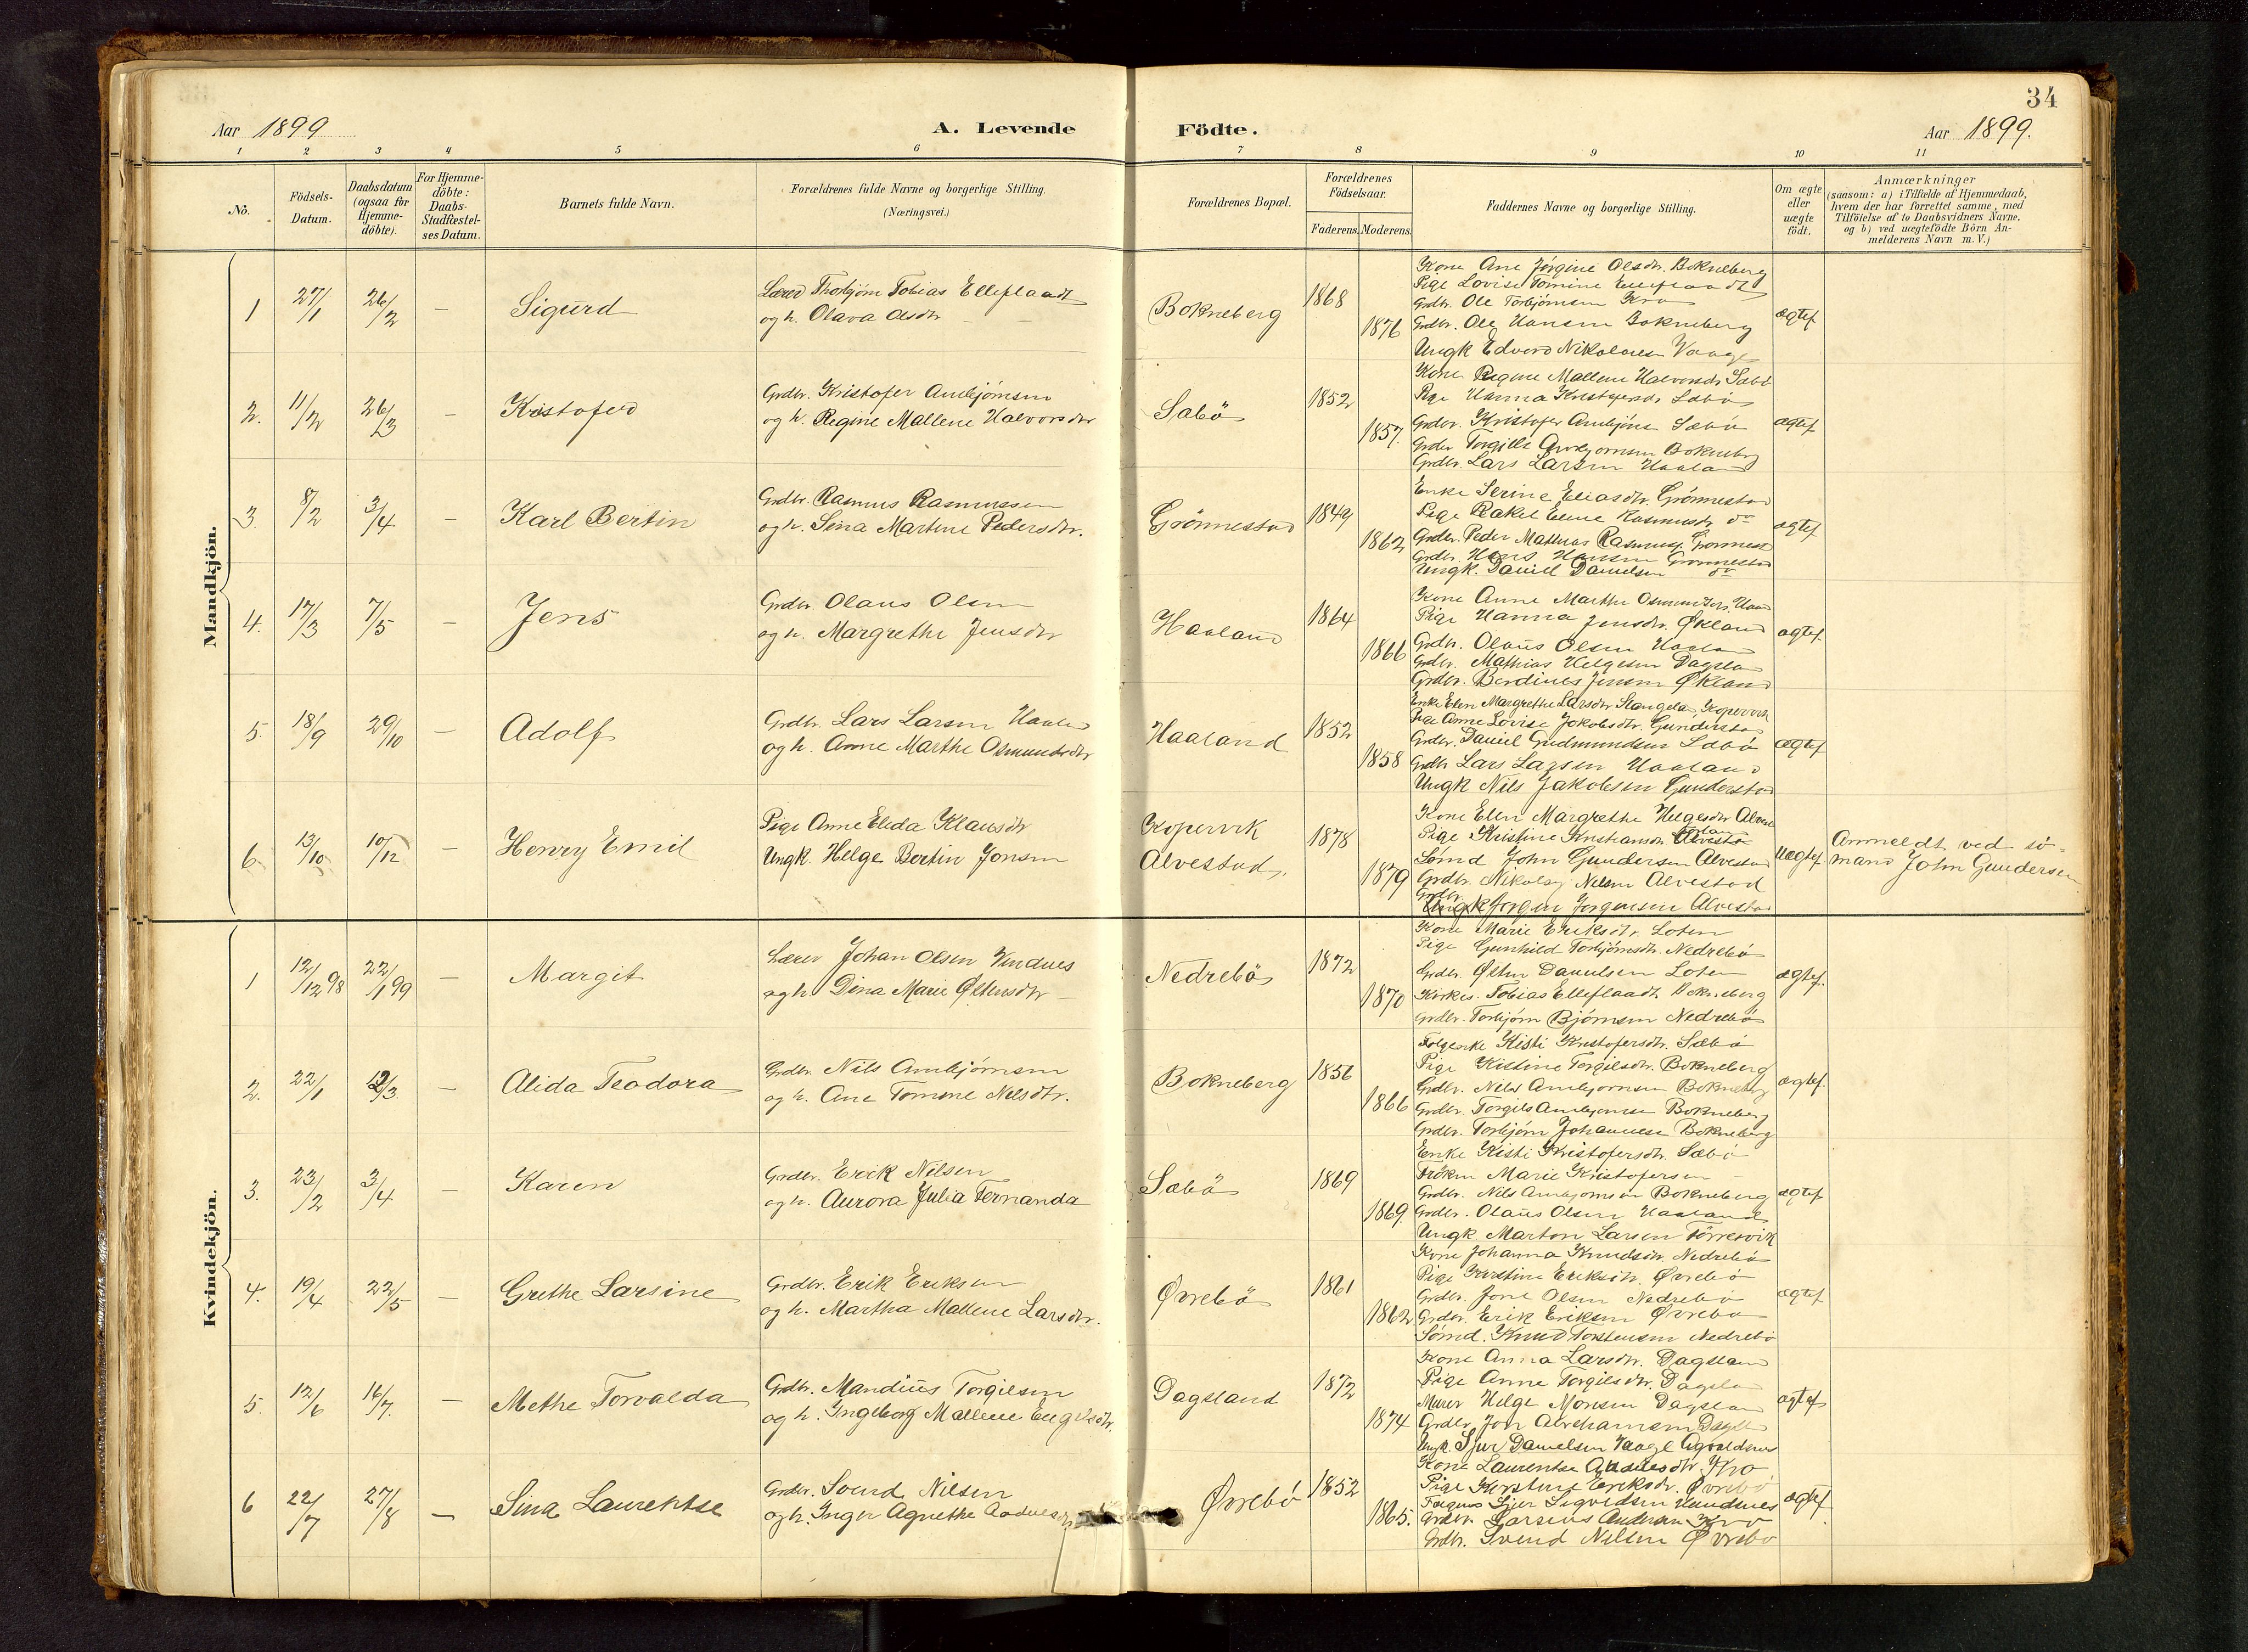 34
Aar 1899
A. Levende Födte.
Aar 1899.
1 2 3 4 5 6 7 8 9 10 11
No.
Födsels-Datum.
Daabsdatum (ogsaa for Hjemme-döbte).
For Hjemme-döbte: Daabs-Stadfæstel-ses Datum.
Barnets fulde Navn.
Forældrenes fulde Navne og borgerlige Stilling. (Næringsvei.)
Forældrenes Bopæl.
Forældrenes Födselsaar.
Faderens. Moderens.
Faddernes Navne og borgerlige Stilling.
Om ægte eller uægte födt.
Anmærkninger (saasom: a) i Tilfælde af Hjemmedaab, hvem der har forrettet samme, med Tilföielse af to Daabsvidners Navne. og b) ved uægtefödte Börn An-melderens Navn m. V.)
Mandkjön.
1 27/1 26/2 — Sigurd
Lærer Thorbjørn Tobias Elleflaadt
og h. Olava Olsdtr
Bokneberg 1868 1876
Kone Ane Jørgine Olsdtr. Bokneberg
Pige Lovise Tomine Elleflaadt
Grdbr. Ole Torbjørnsen Kro
Grdbr. Ole Hansen Bokneberg
Ungk Edvard Nikolaisen Vaage
ægtef
2. 11/2 26/3 — Kristofer
Grdbr. Kristofer Ambjørnsen
og h. Regine Mallene Halvorsdtr
Sæbö 1852 1857.
Kone Regine Mallene Halvorsdtr Sæbö
Pige Hanna Kristofersdr Sæbö
Grdbr. Kristofer Ambjörns Sæbö
Grdbr Torgils Ambjornsen Bokneberg
Grdbr. Lars Larsen Haaland
ægtef
3. 8/2 3/4 — Karl Bertin
Grdbr. Rasmus Rasmussen
og h. Sina Martine Pedersdtr.
Grönnestad 1849 1862
Enke Serine Eliasdtr. Grönnestad
Pige Rakel Eline Rasmusdr do
Grdbr. Peder Mathias Rasmuss. Gronnest
Grdbr. Hans Hansen Gronnestad
Ungk. Daniel Danielsen do
ægtef
4. 17/3 7/5 — Jens
Grdbr. Olaus Olsen
og h. Margrethe Jensdtr
Haaland 1864 1866
Kone Anne Marthe Osmundsdr. Haa
Pige Hanna Jensdtr. Økland
Grdbr. Olaus Olsen Haaland
Grdbr. Mathias Helgesen Dagsland
Grdbr. Berdines Jensen Økland
ægtef.
5. 18/9 29/10 — Adolf
Grdbr. Lars Larsen Haaland
og h. Anne Marthe Osmundsdtr
Haaland 1852 1858
Enke Elen Margrethe Larsdtr Stangeland Kopervik
Pige Anne Lovise Jakobsdtr. Gunderstad
Grdbr. Daniel Gudmundsen Sæbö
Grdbr Lars Larsen Haaland
Ungk Nils Jakobsen Gunderstad
ægtef
6. 13/10 10/12 — Henry Emil
Pige Anne Elida Klausdtr
Ungk. Helge Bertin Jonsen
Kopervik
Alvestad. 1878 1879
Kone Elen Margrethe Helgesdtr Alvest
Pige Kristine Kristiansdr
Sömd John Gundersen Alvestad
Grdbr. Nikolay Nilsen Alvestad
Grdbr Jorgen Jorgensen Alvestad
Uægtef.
Anmeldt ved sö-
mand John Gundersen
Kvindekjön.
1 12/12 98 22/1 99 — Margit
Lærer Johan Olsen
og h. Dina Marie Østensdtr —
Nedrebö 1872 1870
Kone Marie Eriksdtr. Loten
Pige Gunhild Torbjörnsdtr. Nedrebö
Grdbr. Østen Danielsen Loten
Kirkes. Tobias Elleflaadt Bokneberg
Grdbr. Torbjörn Björnsen Nedrebö
ægtef.
2. 22/1 12/3. — Alida Teodora
Grdbr. Nils Ambjörnsen
og h. Ane Tomine Nilsdtr.
Bokneberg 1856 1866
Folgeenke Kisti Kristofersdtr. Sæbö
Pige Kistine Torgilsdtr. Bokneberg
Grdbr. Nils Ambjornsen Bokneberg
Grdbr. Torgils Ambjornsen Bokneberg
Grdbr. Torbjörn Johannesen Bokneberg
ægtef.
3. 23/2 3/4 — Karen
Grdbr. Erik Nilsen
og h. Aurora Julia Fernanda
Sæbö 1869 1869.
Enke Kisti Kristofersdtr. Sæbö
Fröken Marie Kristofersen —
Grdbr. Nils Ambjornsen Bokneberg
Grdbr. Olaus Olsen Haaland
Ungk. Marton Larsen Törresvik
ægtef
4. 19/4 22/5 — Grethe Larsine
Grdbr. Erik Eriksen
og h. Martha Mallene Larsdtr.
Øvrebö 1861 1862
Kone Johanna Knudsdtr. Nedrebö
Pige Kirstine Eriksdtr. Øvrebö
Grdbr. Jone Olsen Nedrebö
Grdbr. Erik Eriksen Øvrebö
Sömd. Knud Torstensen Nedrebö
ægtef
5. 12/6 16/7. — Methe Torvalda
Grdbr. Mandius Torgilsen
og h. Ingeborg Mallene Engelsdtr.
Dagsland 1872 1874
Kone Anna Larsdtr. Dagsland
Pige Anne Torgilsdtr. Dagsland
Murer Helge Monsen Dagsland
Grdbr. Jon Abrahamsen Dagsl
Ungk. Sjur Danielsen Vaage
ægtef
6 22/7 27/8 — Sina Laurentse
Grdbr. Svend Nilsen
og h. Inger Agnethe Aadnesdtr
Øvrebö 1852 1865.
Kone Laurentse Aadnesdtr. Kro
Pige Kirstine Eriksdtr. Øvrebö
Sjur Sigvaldsen
Grdbr. Larsius Andersen Kro
Grdbr. Svend Nilsen Øvrebö
ægtef.